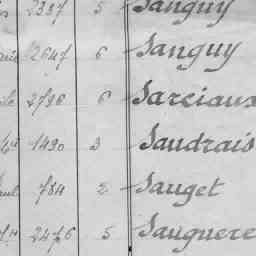 2337 5 Sanguy
2647 6 Sanguy
2796 6 Sarciaux
1490 3 Saudrais
784 2 Sauget
2476 5 Sauguere